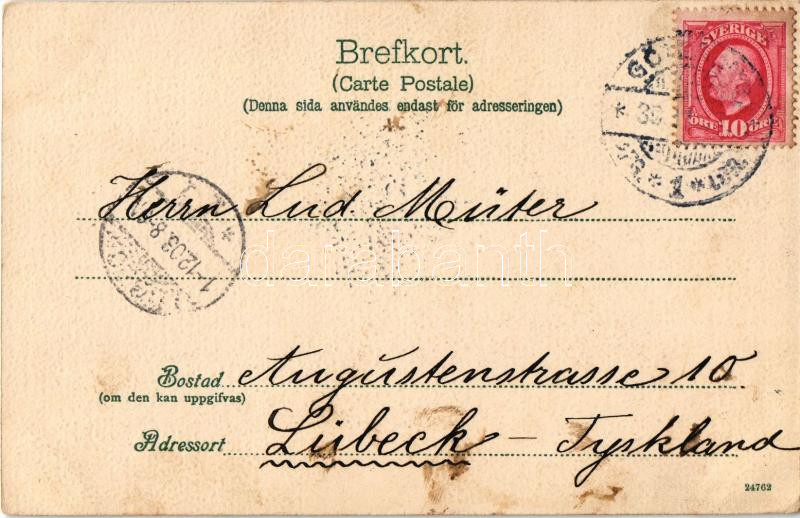 Brefkort.
(Carte Postale)
(Denna sida användes endast för adresseringen)
SVERIGE
ÖRE 10 ÖRE
1
Herrn Lud. Müter
1-12.03.8-9
darabanth
Bostad Augustenstrasse 10.
(om den kan uppgifvas)
Adressort Lübeck - Tyskland
24762